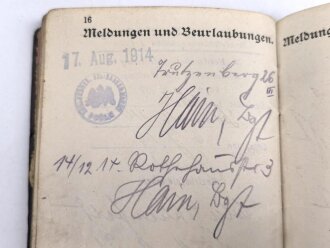 16
Meldungen und Beurlaubungen.
Meldung
17. Aug. 1914
Trutzenberg 26
III
Hain, Bzf
14/12 14. Rothehausstr 3
Hain, Bzf